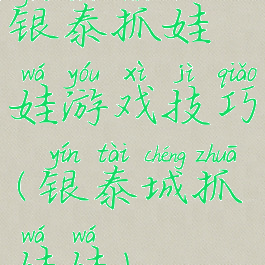 银泰抓娃
wá yóu xì jì qiǎo
娃游戏技巧
yín tài chéng zhuā
(银泰城抓
wá wá
娃娃)